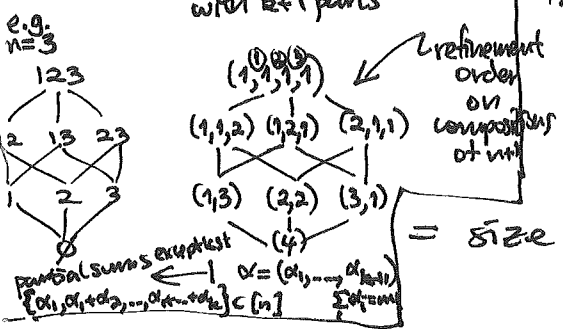 with k+1 parts
e.g.
n=3
123
2 13 23
1 2 3
∅
① ② ③
(1,1,1,1)
(1,1,2) (1,2,1) (2,1,1)
(1,3) (2,2) (3,1)
(4)
refinement
order
on
compositions
of n+1
= size
partial sums except last
α = (α₁, ..., αₖ₊₁)
{α₁, α₁+α₂, ..., α₁+...+αₖ} ⊂ [n]